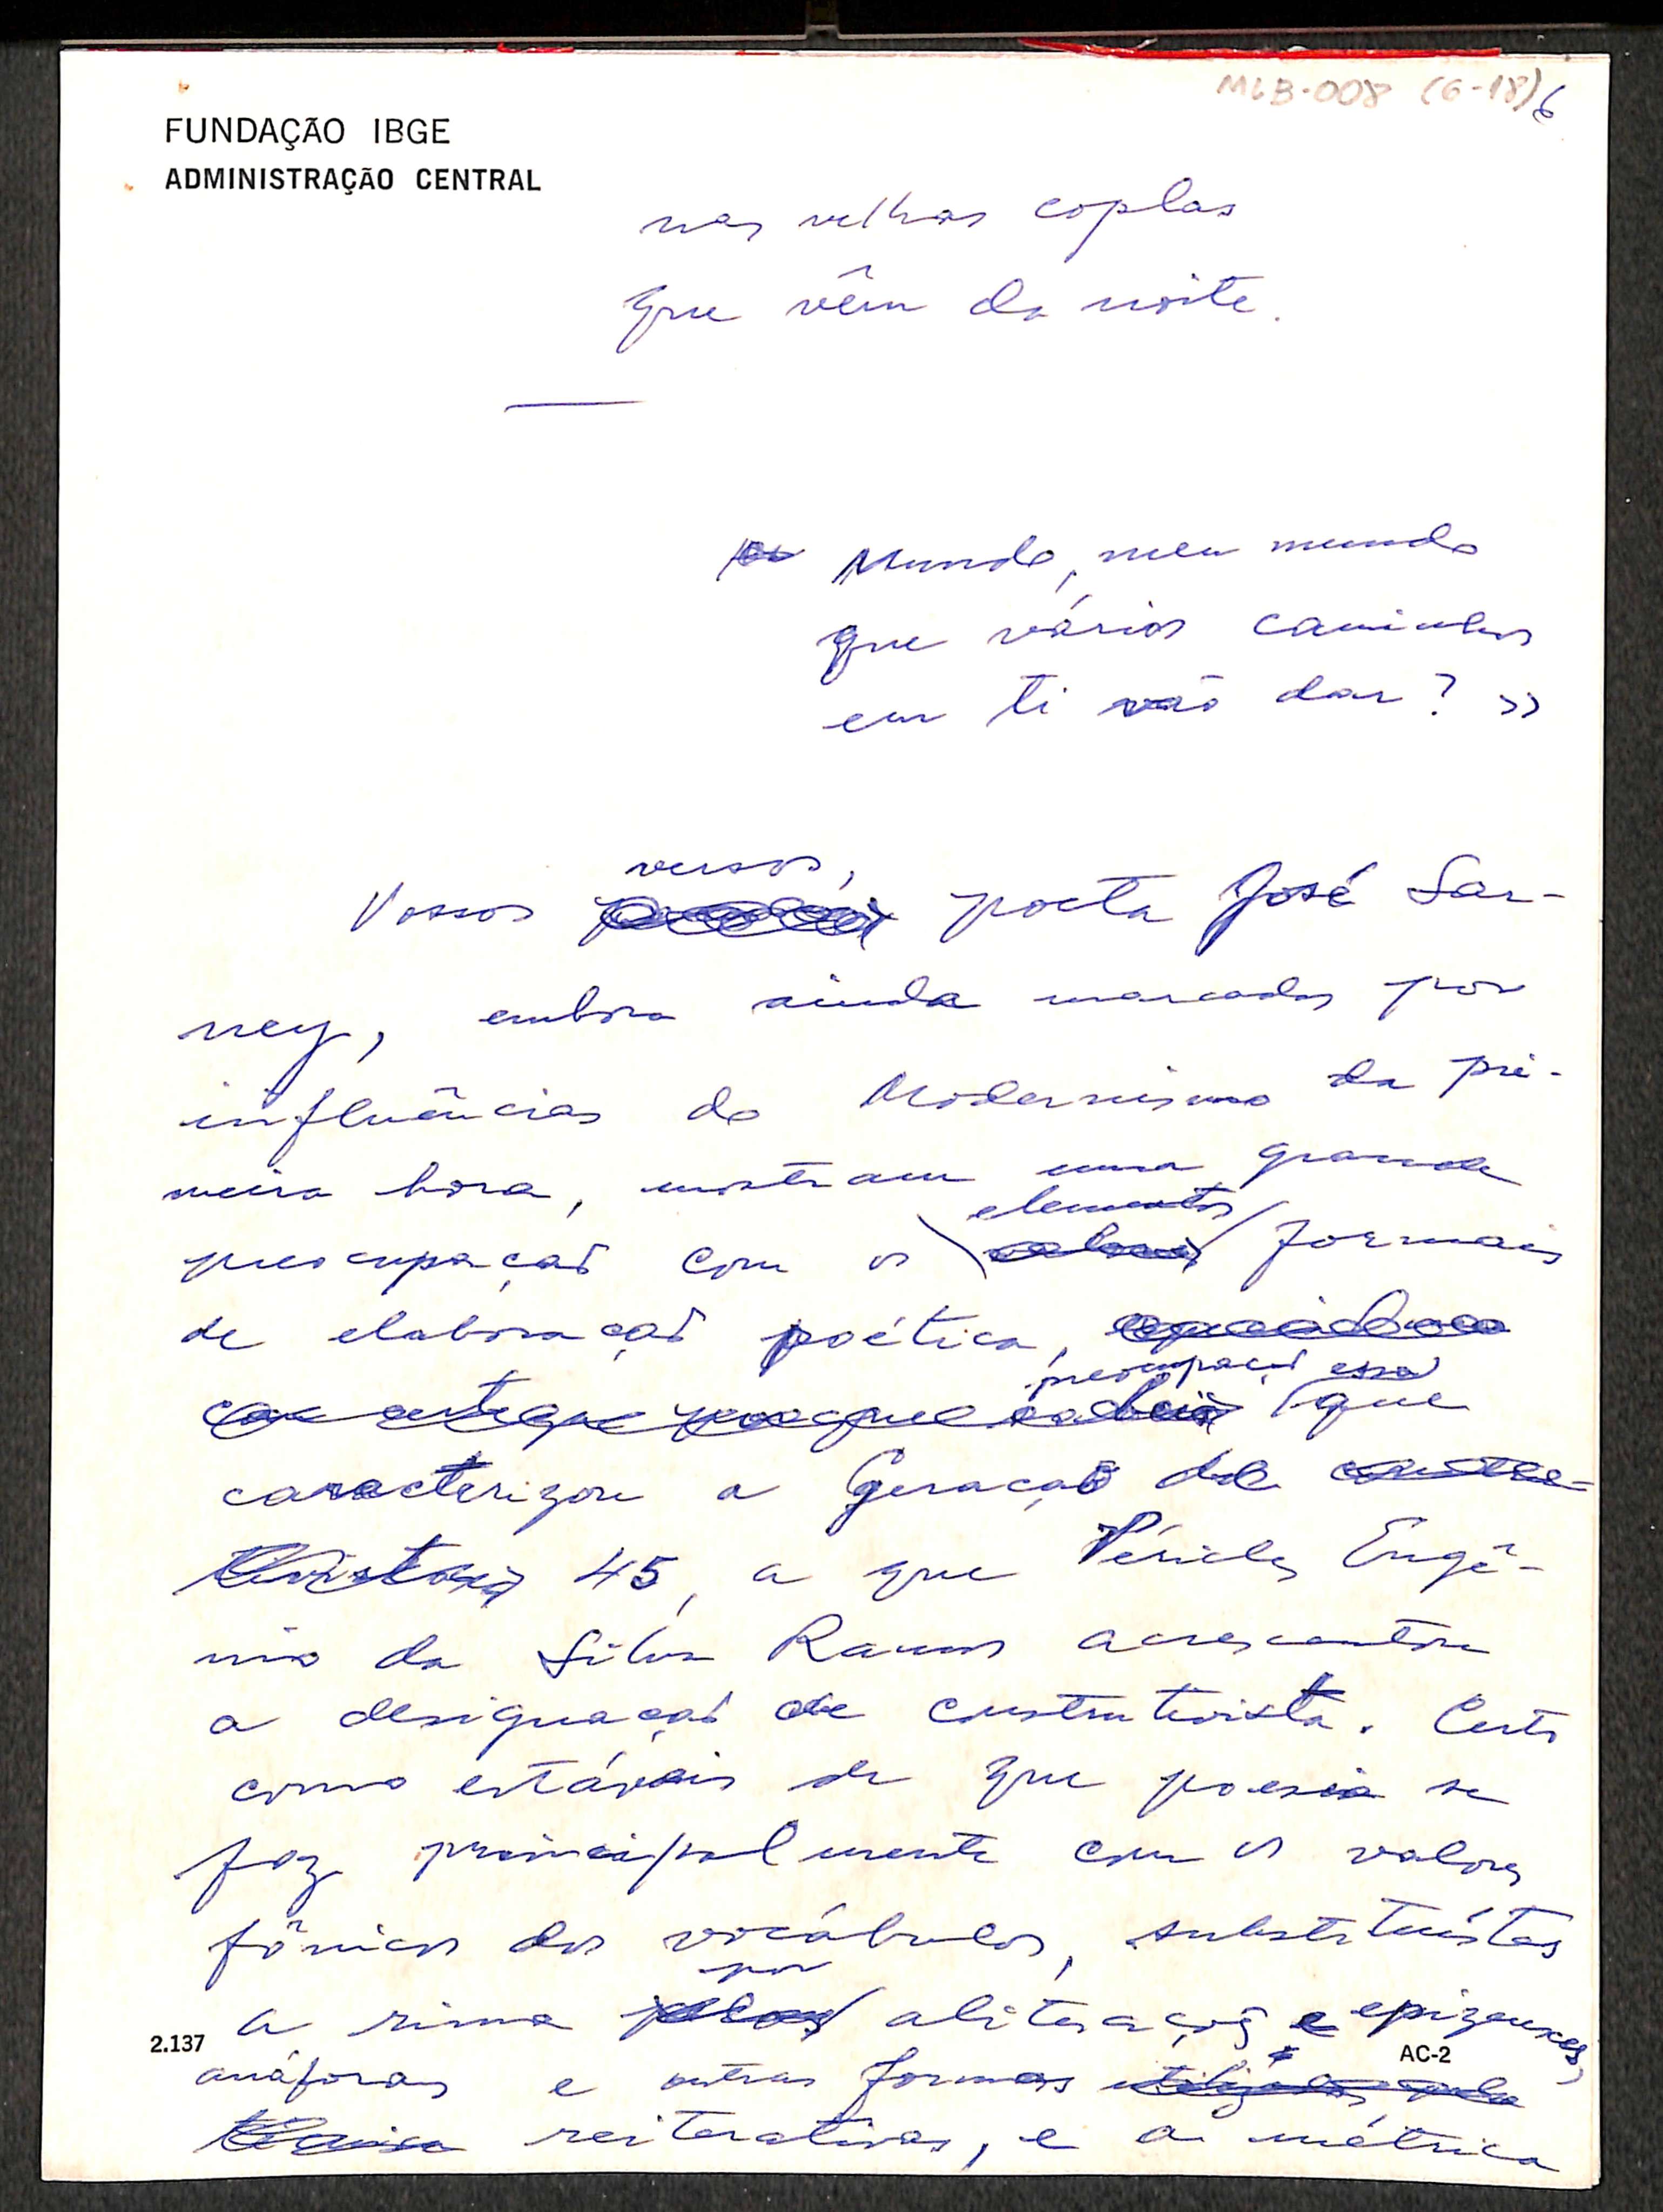 MLB-008 (6-18) 6
FUNDAÇÃO IBGE
ADMINISTRAÇÃO CENTRAL
nas velhas coplas
que vêm da noite.
Mundo, meu mundo
que vários caminhos
em ti vão dar? >>
versos,
Vossos poeta José Sar-
ney, embora ainda marcados por
influências do Modernismo da pri-
meira hora, mostram uma grande
elementos
preocupação com os formais
de elaboração poética,
preocupação essa
que
caracterizou a Geração de
45, a que Péricles Engê-
nio da Silva Ramos acrescentou
a designação de construtivista. Certo
como estáveis de que poesia se
faz principalmente com os valores
fônicos dos vocábulos, substituístes
por
a rima aliterações e epizeuxes,
2.137
AC-2
anáforas e outras formas
reiterativas, e a métrica